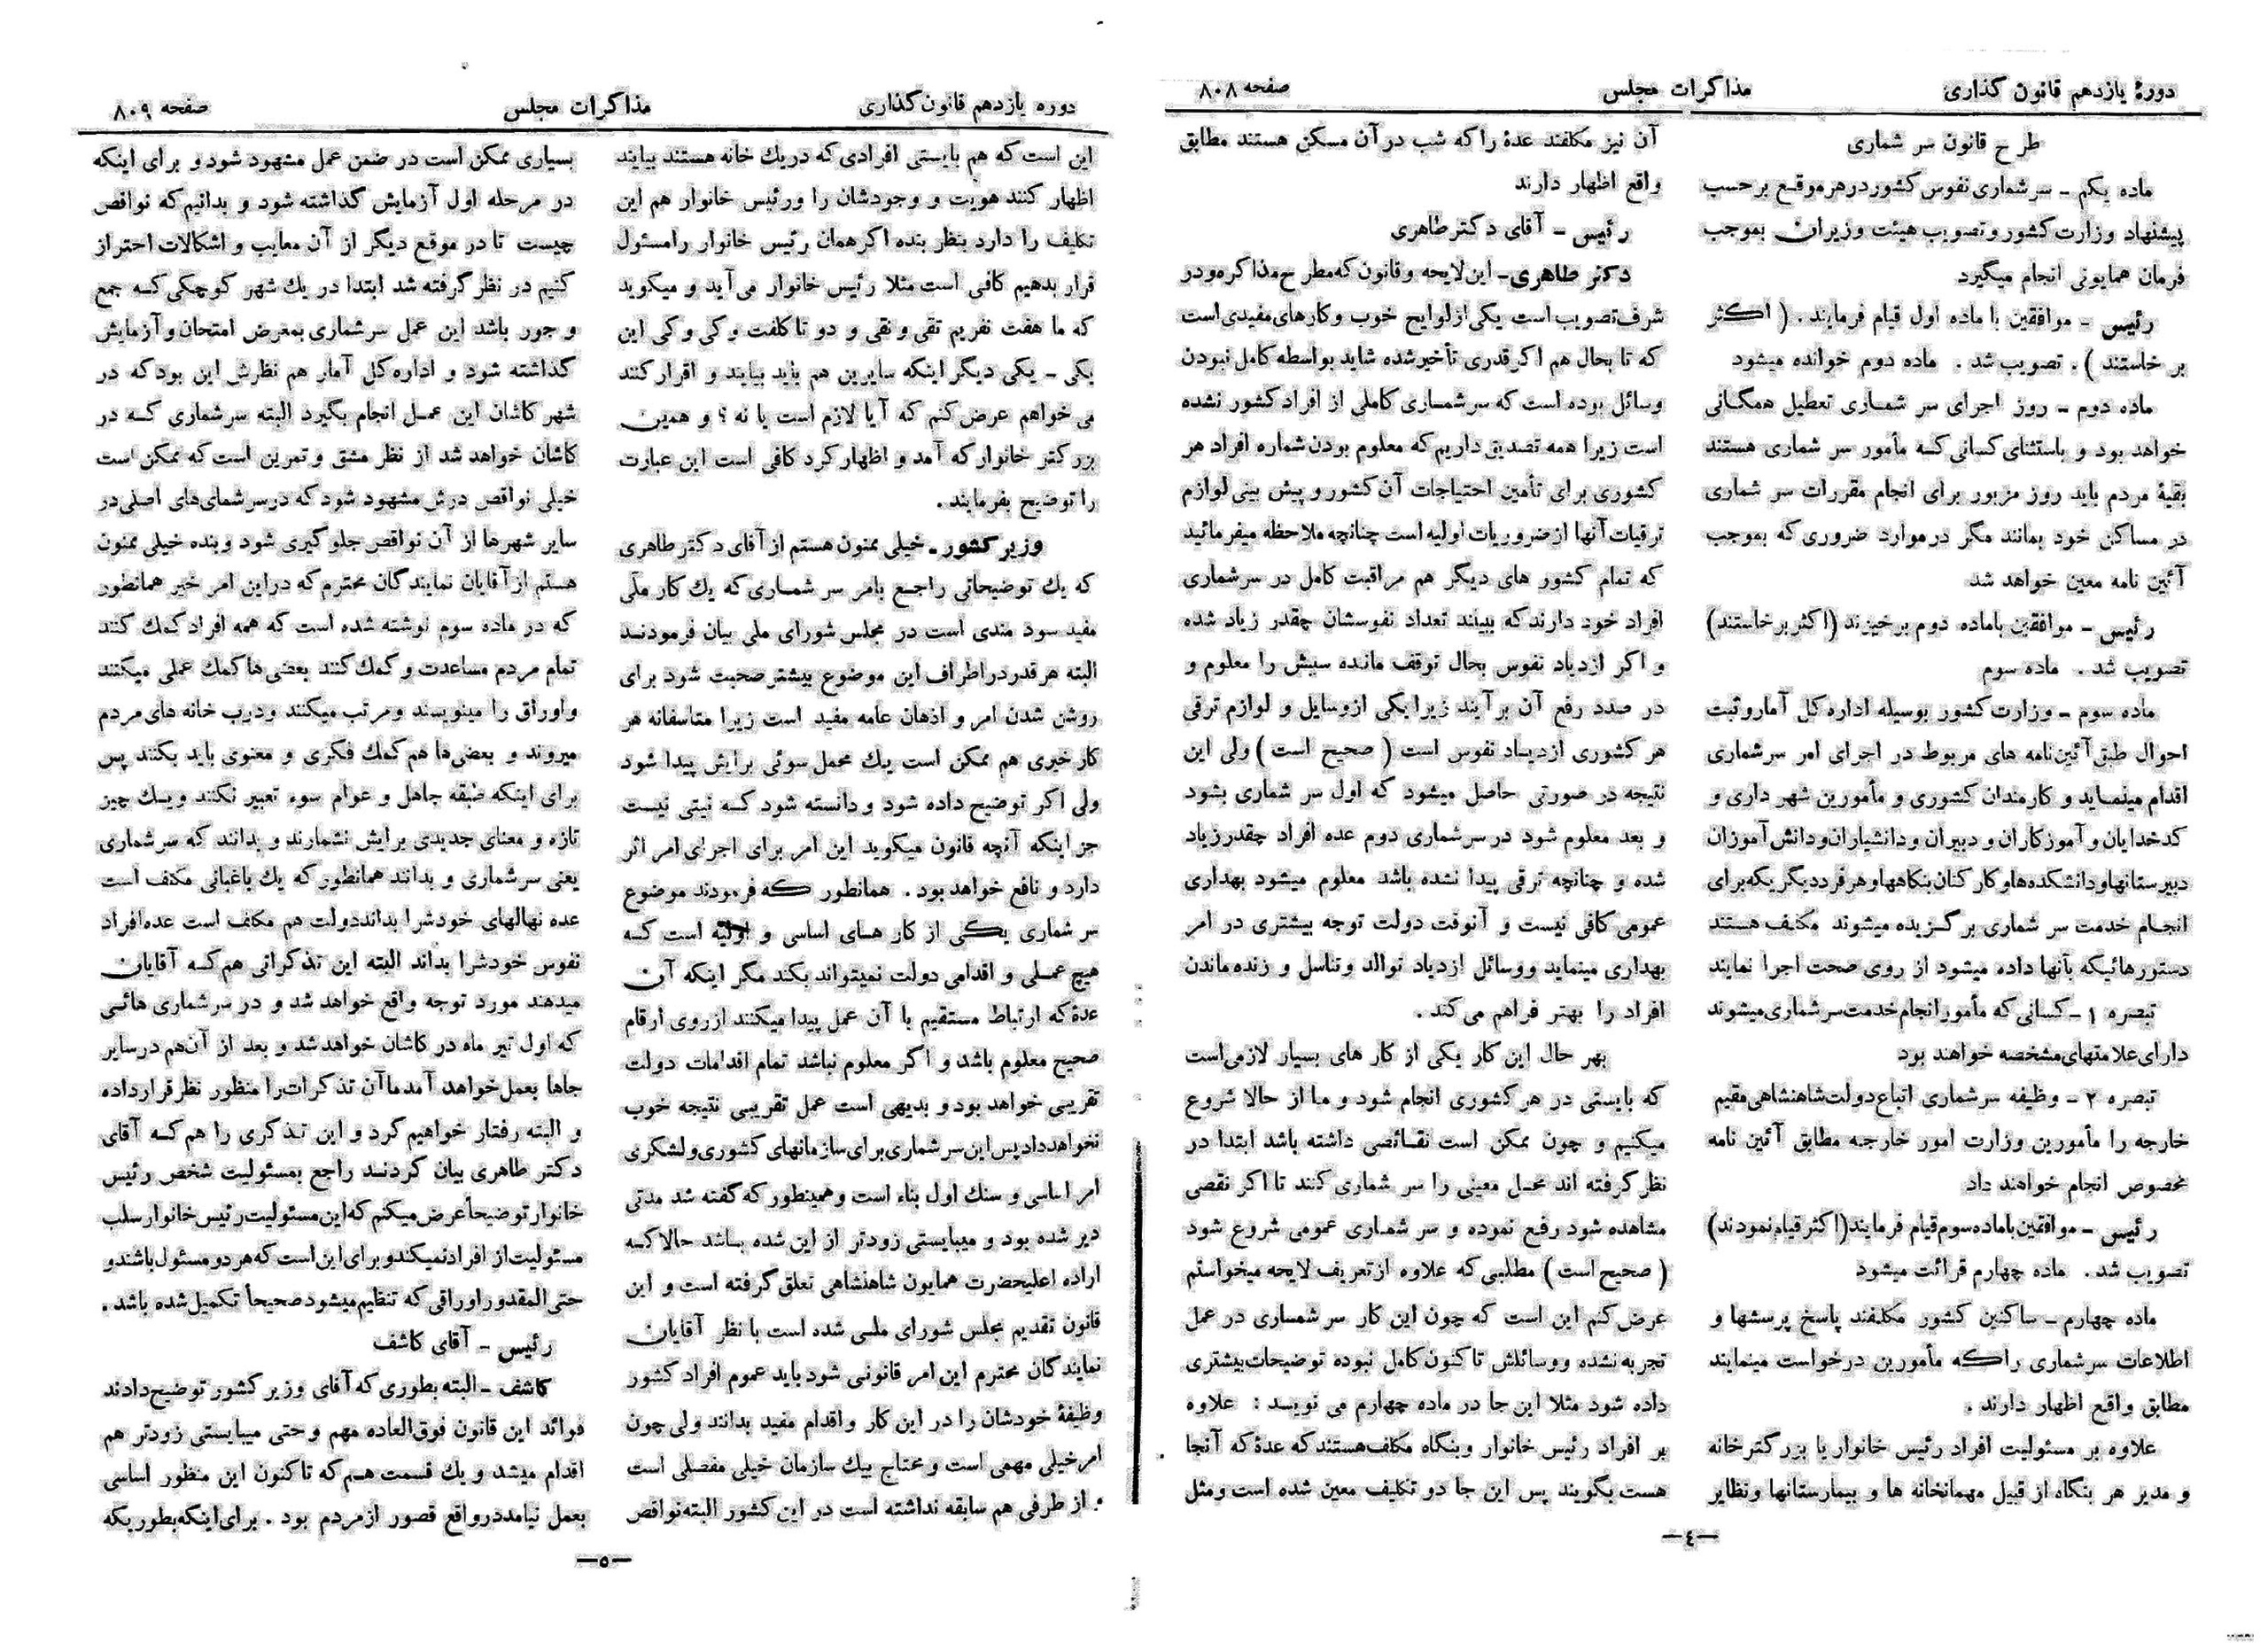 دورهٔ یازدهم قانون گذاری
مذاکرات مجلس
صفحه ۸۰۸
طرح قانون سر شماری
ماده یکم – سرشماری نفوس کشور در هر موقع بر حسب
پیشنهاد وزارت کشور و تصویب هیئت وزیران بموجب
فرمان همایونی انجام میگیرد
رئیس – موافقین با ماده اول قیام فرمایند . ( اکثر
بر خاستند ) . تصویب شد . ماده دوم خوانده میشود
ماده دوم – روز اجرای سر شماری تعطیل همگانی
خواهد بود و باستثنای کسانی که مأمور سر شماری هستند
بقیهٔ مردم باید روز مزبور برای انجام مقررات سر شماری
در مساکن خود بمانند مگر در موارد ضروری که بموجب
آئین نامه معین خواهد شد
رئیس – موافقین با ماده دوم برخیزند (اکثر برخاستند)
تصویب شد . ماده سوم
ماده سوم – وزارت کشور بوسیله اداره کل آمار و ثبت
احوال طبق آئین‌نامه های مربوط در اجرای امر سرشماری
اقدام مینماید و کارمندان کشوری و مأمورین شهر داری و
کدخدایان و آموزکاران و دبیران و دانشیاران و دانش آموزان
دبیرستانها و دانشکده‌ها و کارکنان بنگاهها و هر فرد دیگریکه برای
انجام خدمت سر شماری برگزیده میشوند مکلف هستند
دستورهائیکه بآنها داده میشود از روی صحت اجرا نمایند
تبصره ۱ – کسانی که مأمور انجام خدمت سرشماری میشوند
دارای علامتهای مشخصه خواهند بود
تبصره ۲ – وظیفه سرشماری اتباع دولت شاهنشاهی مقیم
خارجه را مأمورین وزارت امور خارجه مطابق آئین نامه
مخصوص انجام خواهند داد
رئیس – موافقین با ماده سوم قیام فرمایند (اکثر قیام نمودند)
تصویب شد . ماده چهارم قرائت میشود
ماده چهارم – ساکنین کشور مکلفند پاسخ پرسشها و
اطلاعات سرشماری را که مأمورین درخواست مینمایند
مطابق واقع اظهار دارند .
علاوه بر مسئولیت افراد رئیس خانوار یا بزرگتر خانه
و مدیر هر بنگاه از قبیل مهمانخانه ها و بیمارستانها و نظایر
آن نیز مکلفند عدهٔ را که شب در آن مسکن هستند مطابق
واقع اظهار دارند
رئیس – آقای دکتر طاهری
دکتر طاهری – این لایحه و قانون که مطرح مذاکره و در
شرف تصویب است یکی از لوایح خوب و کارهای مفیدی است
که تا بحال هم اگر قدری تأخیر شده شاید بواسطه کامل نبودن
وسائل بوده است که سرشماری کاملی از افراد کشور نشده
است زیرا همه تصدیق داریم که معلوم بودن شماره افراد هر
کشوری برای تأمین احتیاجات آن کشور و پیش بینی لوازم
ترقیات آنها از ضروریات اولیه است چنانچه ملاحظه میفرمائید
که تمام کشور های دیگر هم مراقبت کامل در سرشماری
افراد خود دارند که ببینند تعداد نفوسشان چقدر زیاد شده
و اگر ازدیاد نفوس بحال توقف مانده سببش را معلوم و
در صدد رفع آن بر آیند زیرا یکی از وسایل و لوازم ترقی
هر کشوری ازدیاد نفوس است ( صحیح است ) ولی این
نتیجه در صورتی حاصل میشود که اول سر شماری بشود
و بعد معلوم شود در سرشماری دوم عده افراد چقدر زیاد
شده و چنانچه ترقی پیدا نشده باشد معلوم میشود بهداری
عمومی کافی نیست و آنوقت دولت توجه بیشتری در امر
بهداری مینماید و وسائل ازدیاد توالد و تناسل و زنده ماندن
افراد را بهتر فراهم می کند .
بهر حال این کار یکی از کار های بسیار لازمی است
که بایستی در هر کشوری انجام شود و ما از حالا شروع
میکنیم و چون ممکن است نقائصی داشته باشد ابتدا در
نظر گرفته اند محل معینی را سر شماری کنند تا اگر نقصی
مشاهده شود رفع نموده و سر شماری عمومی شروع شود
( صحیح است ) مطلبی که علاوه از تعریف لایحه میخواستم
عرض کنم این است که چون این کار سر شماری در عمل
تجربه نشده و وسائلش تا کنون کامل نبوده توضیحات بیشتری
داده شود مثلا این جا در ماده چهارم می نویسد : علاوه
بر افراد رئیس خانوار و بنگاه مکلف هستند که عدهٔ که آنجا
هست بگویند پس این جا دو تکلیف معین شده است و مثل
–٤–
دوره یازدهم قانون گذاری
مذاکرات مجلس
صفحه ۸۰۹
این است که هم بایستی افرادی که در یك خانه هستند بیایند
اظهار کنند هویت و وجودشان را و رئیس خانوار هم این
تکلیف را دارد بنظر بنده اگر همان رئیس خانوار را مسئول
قرار بدهیم کافی است مثلا رئیس خانوار می آید و میگوید
که ما هفت نفریم تقی و نقی و دو تا کلفت و کی و کی این
یکی – یکی دیگر اینکه سایرین هم باید بیایند و اقرار کنند
می خواهم عرض کنم که آیا لازم است یا نه ؟ و همین
بزرگتر خانوار که آمد و اظهار کرد کافی است این عبارت
را توضیح بفرمایند .
وزیر کشور – خیلی ممنون هستم از آقای دکتر طاهری
که یك توضیحاتی راجع بامر سر شماری که یك کار ملی
مفید سود مندی است در مجلس شورای ملی بیان فرمودند
البته هر قدر در اطراف این موضوع بیشتر صحبت شود برای
روشن شدن امر و اذهان عامه مفید است زیرا متاسفانه هر
کار خیری هم ممکن است یك محمل سوئی برایش پیدا شود
ولی اگر توضیح داده شود و دانسته شود که نیتی نیست
جز اینکه آنچه قانون میگوید این امر برای اجرای امر اثر
دارد و نافع خواهد بود . همانطور که فرمودند موضوع
سر شماری یکی از کار های اساسی و اولیه است که
هیچ عملی و اقدامی دولت نمیتواند بکند مگر اینکه آن
عدهٔ که ارتباط مستقیم با آن عمل پیدا میکنند از روی ارقام
صحیح معلوم باشد و اگر معلوم نباشد تمام اقدامات دولت
تقریبی خواهد بود و بدیهی است عمل تقریبی نتیجه خوب
نخواهد داد پس این سرشماری برای سازمانهای کشوری و لشکری
امر اساسی و سنك اول بناء است و همینطور که گفته شد مدتی
دیر شده بود و میبایستی زودتر از این شده باشد حالا که
اراده اعلیحضرت همایون شاهنشاهی تعلق گرفته است و این
قانون تقدیم مجلس شورای ملی شده است با نظر آقایان
نمایندگان محترم این امر قانونی شود باید عموم افراد کشور
وظیفهٔ خودشان را در این کار و اقدام مفید بدانند ولی چون
امر خیلی مهمی است و محتاج بیك سازمان خیلی مفصلی است
. از طرفی هم سابقه نداشته است در این کشور البته نواقص
بسیاری ممکن است در ضمن عمل مشهود شود و برای اینکه
در مرحله اول آزمایش گذاشته شود و بدانیم که نواقص
چیست تا در موقع دیگر از آن معایب و اشکالات احتراز
کنیم در نظر گرفته شد ابتدا در یك شهر کوچکی که جمع
و جور باشد این عمل سرشماری بمعرض امتحان و آزمایش
گذاشته شود و اداره کل آمار هم نظرش این بود که در
شهر کاشان این عمل انجام بگیرد البته سرشماری که در
کاشان خواهد شد از نظر مشق و تمرین است که ممکن است
خیلی نواقص درش مشهود شود که در سرشمای‌های اصلی در
سایر شهرها از آن نواقص جلوگیری شود و بنده خیلی ممنون
هستم از آقایان نمایندگان محترم که در این امر خیر همانطور
که در ماده سوم نوشته شده است که همه افراد کمك کنند
تمام مردم مساعدت و کمك کنند بعضی ها کمك عملی میکنند
و اوراق را مینویسند و مرتب میکنند و درب خانه های مردم
میروند و بعضی‌ها هم کمك فکری و معنوی باید بکنند پس
برای اینکه طبقه جاهل و عوام سوء تعبیر نکنند و یك چیز
تازه و معنای جدیدی برایش نشمارند و بدانند که سرشماری
یعنی سرشماری و بدانند همانطور که یك باغبانی مکلف است
عده نهالهای خودش را بداند دولت هم مکلف است عده افراد
نفوس خودش را بداند البته این تذکراتی هم که آقایان
میدهند مورد توجه واقع خواهد شد و در سرشماری هائی
که اول تیر ماه در کاشان خواهد شد و بعد از آن هم در سایر
جاها بعمل خواهد آمد ما آن تذکرات را منظور نظر قرار داده
و البته رفتار خواهیم کرد و این تذکری را هم که آقای
دکتر طاهری بیان کردند راجع بمسئولیت شخص رئیس
خانوار توضیحاً عرض میکنم که این مسئولیت رئیس خانوار سلب
مسئولیت از افراد نمیکند و برای این است که هر دو مسئول باشند و
حتی المقدور اوراقی که تنظیم میشود صحیحاً تکمیل شده باشد .
رئیس – آقای کاشف
کاشف – البته بطوری که آقای وزیر کشور توضیح دادند
فوائد این قانون فوق العاده مهم و حتی میبایستی زودتر هم
اقدام میشد و یك قسمت هم که تا کنون این منظور اساسی
بعمل نیامده در واقع قصور از مردم بود . برای اینکه بطوریکه
–٥–